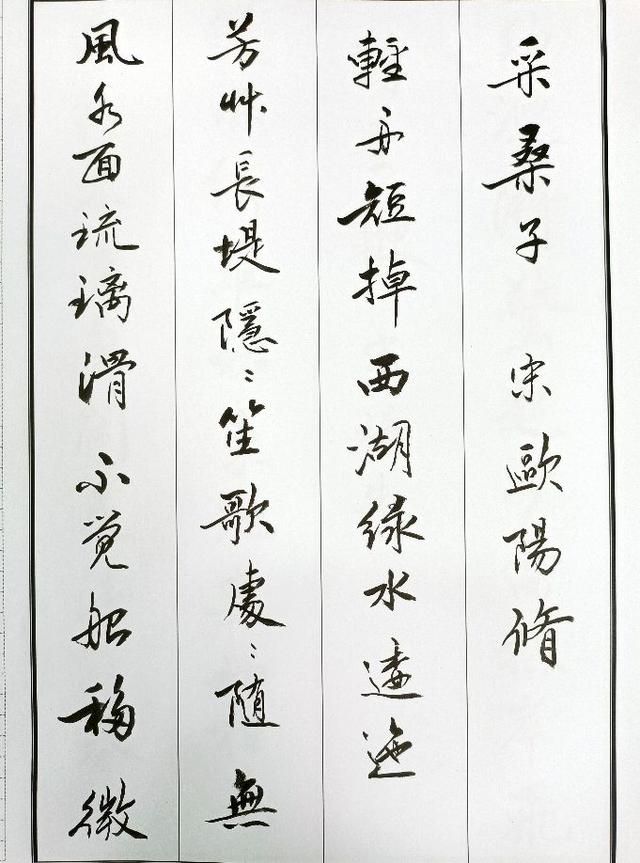 采桑子 宋 歐陽脩
輕舟短掉西湖緑水逶迤
芳艸長堤隱〻笙歌處〻随無
風水面琉璃滑不覺船移微